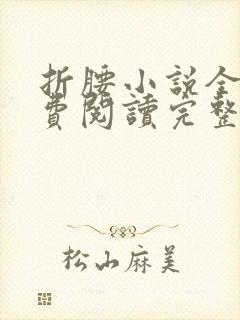 折腰小説全
費閱讀完整
松山麻美